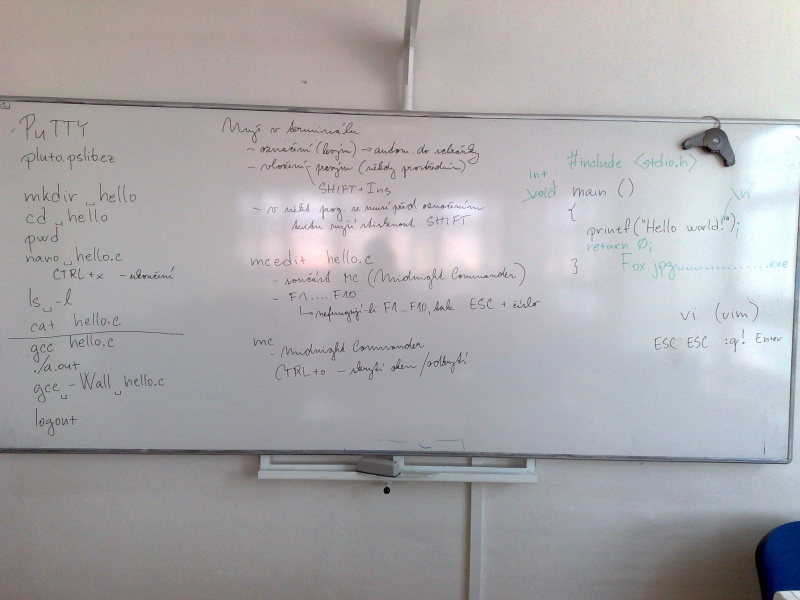 PuTTY
pluto.pslib.cz
mkdir␣hello
cd␣hello
pwd
nano␣hello.c
CTRL+x - ukončení
ls␣-l
cat hello.c
gcc hello.c
./a.out
gcc␣-Wall␣hello.c
logout
Myší v terminálu
- označení (levým) → autom. do schránky
- vložení pravým (někdy prostředním)
SHIFT+Ins
- v někt. prog. se musí před označením
textu myší stisknout SHIFT
mcedit hello.c
- součást MC (Midnight Commander)
- F1....F10
↳ nefungují-li F1...F10, tak ESC + číslo
mc
- Midnight Commander
CTRL+o - skrytí oken/odkrytí
#include <stdio.h>
int
void main ()
{
\n
printf("Hello world!");
return 0;
}
Fox jpg...................exe
vi (vim)
ESC ESC :q! Enter